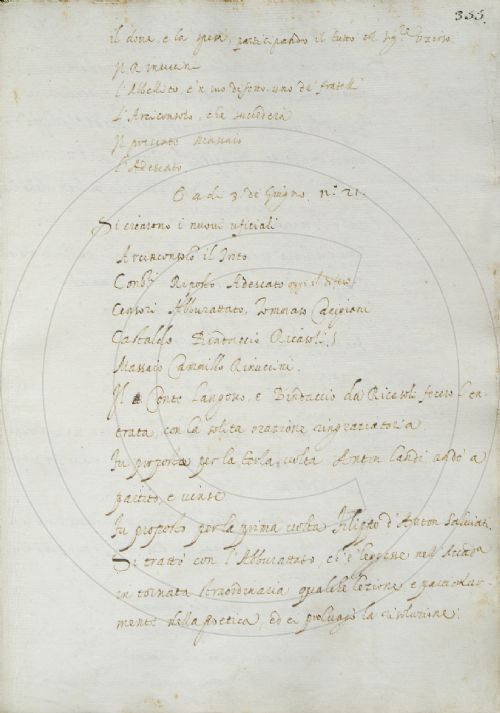 355.
il dove, e la spesa, participando il tutto col Sig.re
Il Rinuccini
L'Abbellito, e'n suo difetto uno de' fratelli
L'Arciconsolo, che succederà
Il presente Massaio
L'Adescato
C a dì 3. di Giugno n.° 21.
Si crearono i nuovi uficiali
Arciconsolo il
Cons.ri Riposto, Adescato oggi il
Censori Abburattato, Tommaso
Castaldo Bindaccio Ricasoli
Massaio Cammillo Rinuccini.
Il Conte e Bindaccio da Ricasoli fecero l'en-
trata, con la solita orazione ringraziatoria
Fu proposto per la terza volta Anton Landi andò a
partito, e vinse
Fu proposto per la prima volta Filippo d'Anton Salviati.
Si trattò con l'Abburattato, ch'e' leggesse nell'Accad.a
in tornata straordinaria qualche lezione, e particular-
mente della poetica, ed ei prolungò la risoluzione.